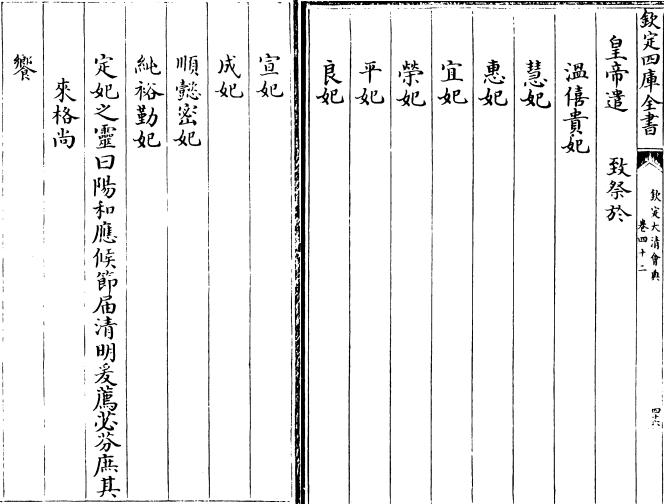 欽定四庫全書
欽定大清會典
卷四十二
四十六
皇帝遣 致祭於
溫僖貴妃
慧妃
惠妃
宜妃
榮妃
平妃
良妃
宣妃
成妃
順懿密妃
純裕勤妃
定妃之靈曰陽和應候節届清明爰薦必芬庶其
來格尚
饗